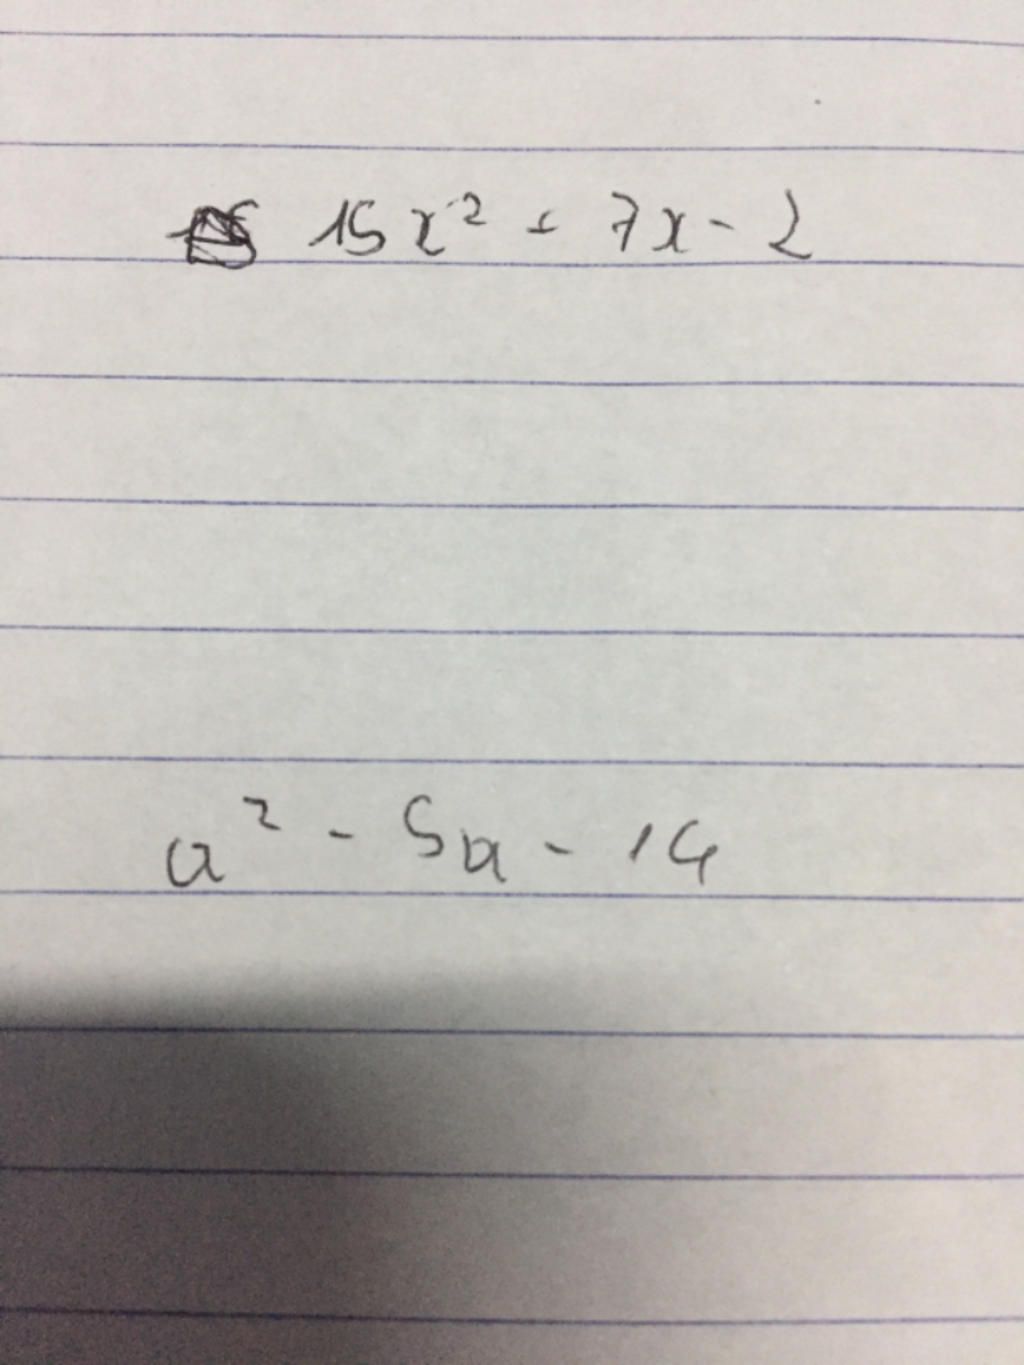 15x² + 7x - 2
a² - 5a - 14